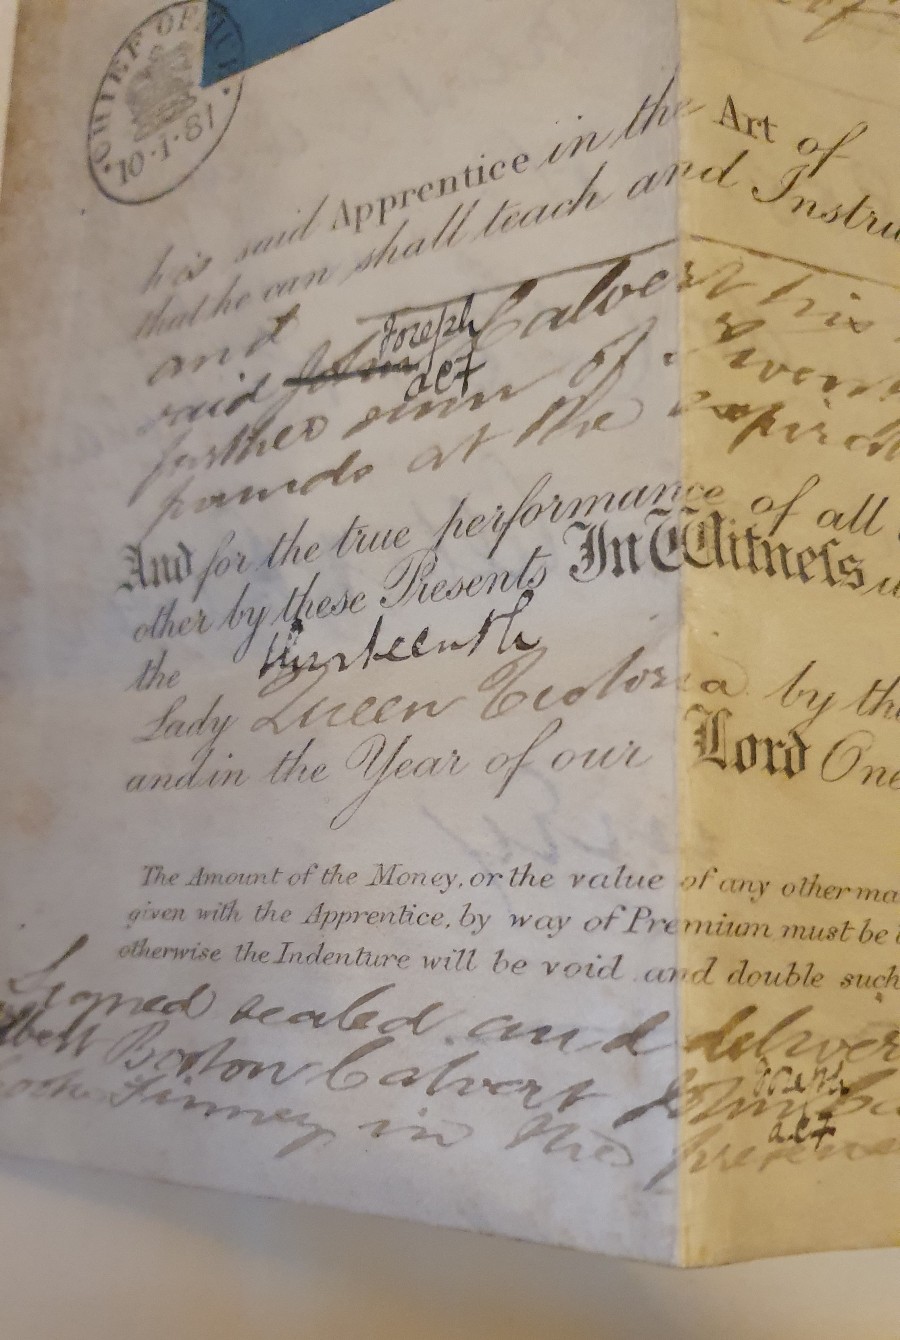 10·1·81
his said Apprentice in the Art of
that he can shall teach and Instru
and
Joseph
said John Calvert his
act
further sum of
pounds at the expirat
And for the true performance of all
other by these Presents In Witness
the thirteenth
Lady Queen Victoria by the
and in the Year of our Lord One
The Amount of the Money, or the value of any other ma
given with the Apprentice, by way of Premium must be
otherwise the Indenture will be void and double such
Signed sealed and deliver
Joseph
Boston Calvert John
act
Finney in the presence